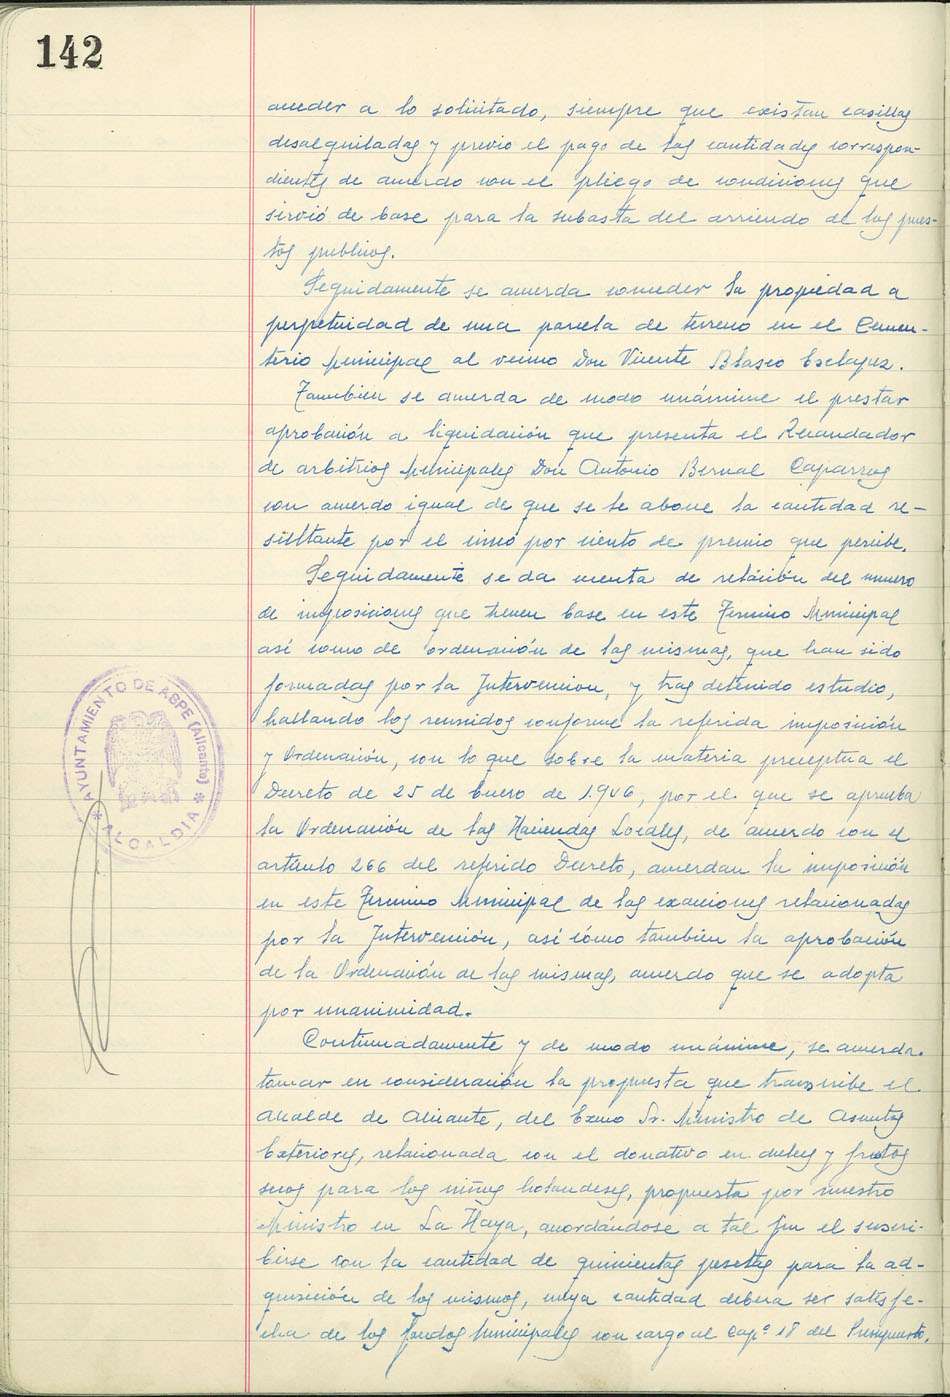 142
acceder a lo solicitado, siempre que existan casillas
desalquiladas y previo el pago de las cantidades correspon-
dientes de acuerdo con el pliego de condiciones que
sirvió de base para la subasta del arriendo de los pues-
tos publicos.
Seguidamente se acuerda conceder la propiedad a
perpetuidad de una parcela de terreno en el Cemen-
terio Municipal al vecino Don Vicente Blasco Esclapez.
Tambien se acuerda de modo unánime el prestar
aprobación a liquidación que presenta el Recaudador
de arbitrios Municipales Don Antonio Bernal Caparros
con acuerdo igual de que se le abone la cantidad re-
sultante por el cinco por ciento de premio que percibe.
Seguidamente se da cuenta de relación del numero
de imposiciones que tienen base en este Termino Municipal
así como de ordenación de las mismas, que han sido
formadas por la Intervencion, y tras detenido estudio,
hallando los reunidos conforme la referida imposición
y Ordenación, con lo que sobre la materia preceptua el
Decreto de 25 de Enero de 1.946, por el que se aprueba
la Ordenación de las Haciendas Locales, de acuerdo con el
artículo 266 del referido Decreto, acuerdan la imposición
en este Termino Municipal de las exacciones relacionadas
por la Intervención, así cómo también la aprobación
de la Ordenación de las mismas, acuerdo que se adopta
por unanimidad.
Continuadamente y de modo unánime, se acuerda
tomar en consideración la propuesta que transcribe el
Alcalde de Alicante, del Excmo Sr. Ministro de Asuntos
Exteriores, relacionada con el donativo en dulces y frutos
secos para los niños holandeses, propuesta por nuestro
Ministro en La Haya, acordándose a tal fin el suscri-
birse con la cantidad de quinientas pesetas para la ad-
quisición de los mismos, cuya cantidad debera ser satisfe-
cha de los fondos Municipales con cargo al Capº 18 del Presupuesto.
AYUNTAMIENTO DE ASPE (Alicante)
* ALCALDIA *